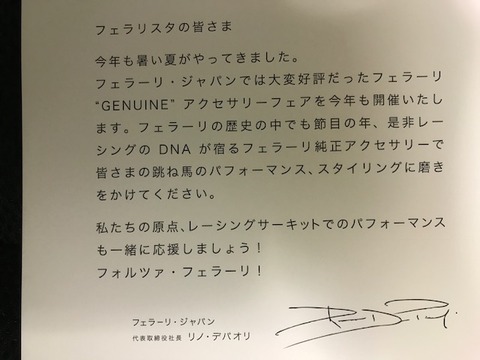 フェラリスタの皆さま
今年も暑い夏がやってきました。
フェラーリ・ジャパンでは大変好評だったフェラーリ
“GENUINE” アクセサリーフェアを今年も開催いたし
ます。フェラーリの歴史の中でも節目の年、是非レー
シングの DNA が宿るフェラーリ純正アクセサリーで
皆さまの跳ね馬のパフォーマンス、スタイリングに磨き
をかけてください。
私たちの原点、レーシングサーキットでのパフォーマンス
も一緒に応援しましょう！
フォルツァ・フェラーリ！
フェラーリ・ジャパン
代表取締役社長 リノ・デパオリ